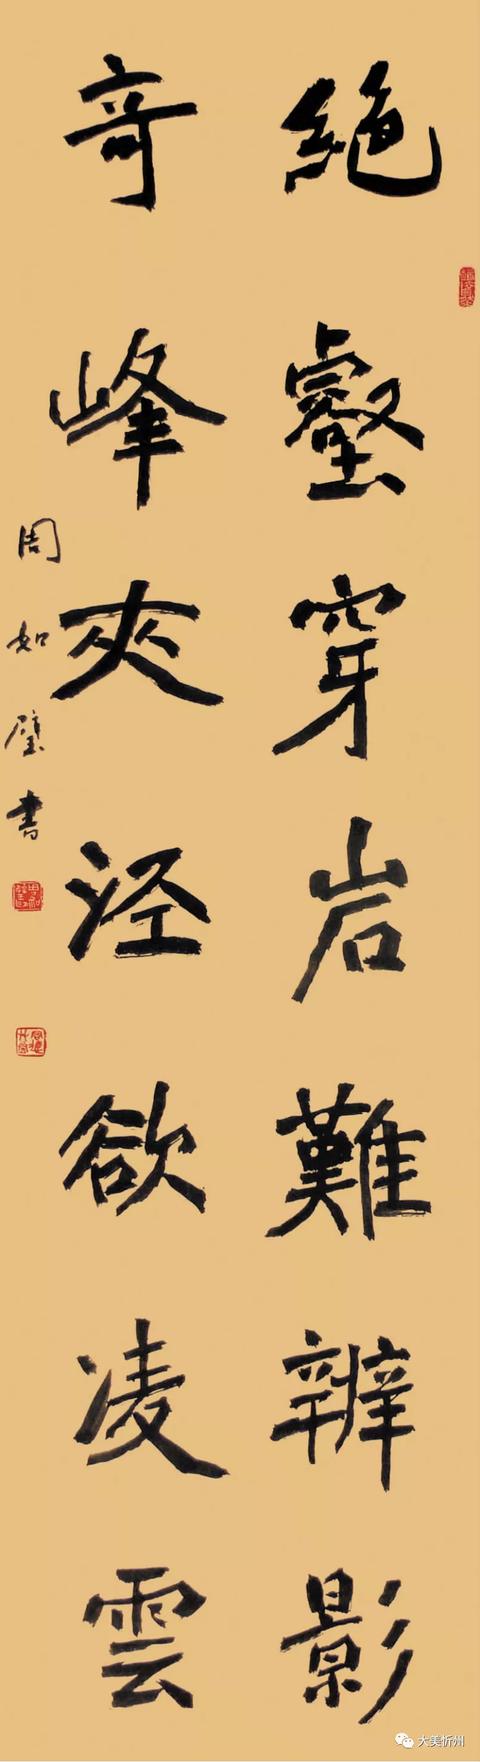 絕壑穿岩難辨影
奇峰夾泾欲凌雲
周如璧書
大美忻州